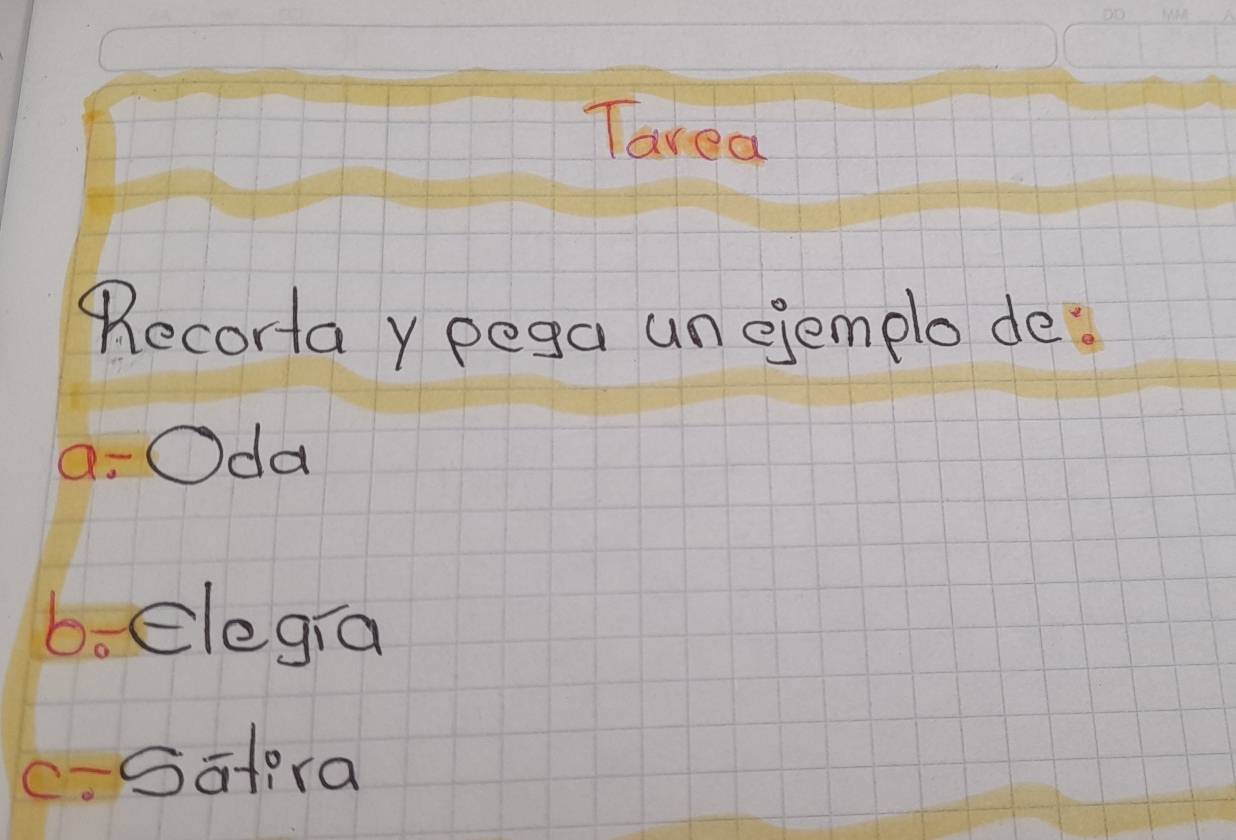 DD MM A
Tarea
Recorta y pega un ejemplo de:
a.- Oda
b.- Elegía
c.- Sátira